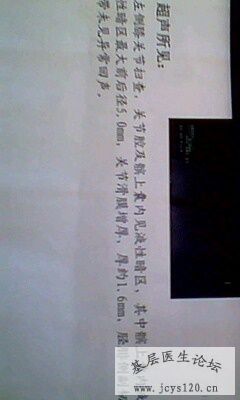 超声所见:
左侧膝关节扫查，关节腔及髌上囊内见液性暗区，其中髌上
性暗区最大前后径5.0mm，关节滑膜增厚，厚约1.6mm，胫
带未见异常回声。
基层医生论坛
www.jcys120.cn